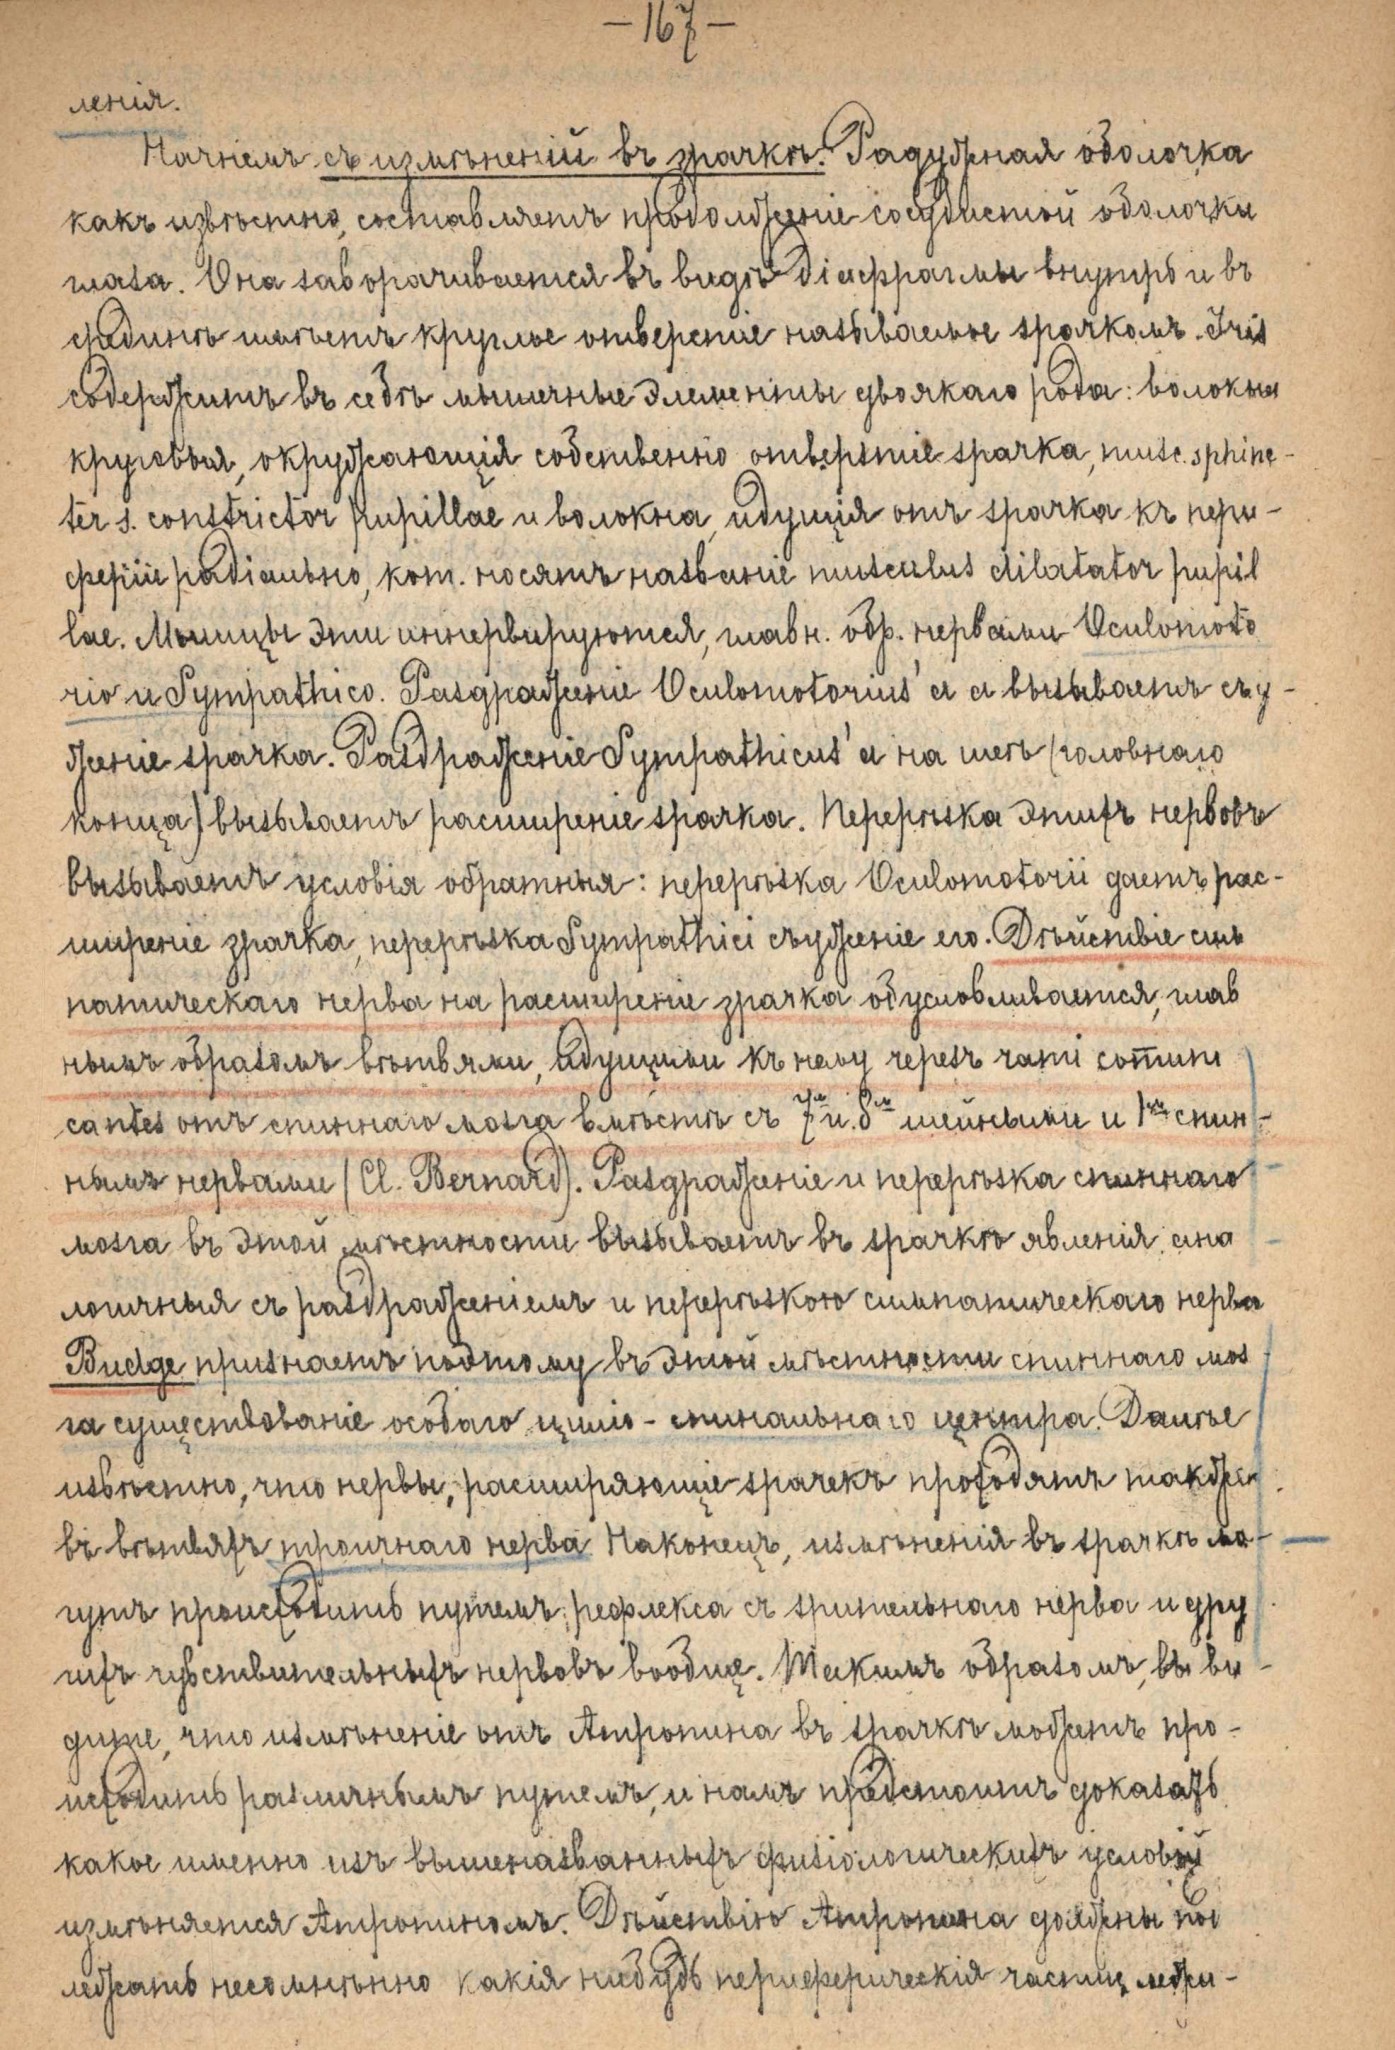 —167—
ленія.
Начнемъ съ измѣненій въ зрачкѣ. Радужная оболочка
какъ извѣстно, составляетъ продолженіе сосудистой оболочки
глаза. Она заворачивается въ видѣ діафрагмы внутрь и въ
срединѣ имѣетъ круглое отверстіе называемое зрачкомъ. Iris
содержитъ въ себѣ мышечные элементы двоякаго рода: волокна
круговыя, окружающія собственно отверзтіе зрачка, musc. sphinc-
ter s. constrictor pupillae и волокна, идущія отъ зрачка къ пери-
феріи радіально, кот. носятъ названіе musculus dilatator pupil
lae. Мышцы эти иннервируются, главн. обр. нервами Oculomoto
rio и Sympathico. Раздраженіе Oculomotorius'а а вызываетъ съу-
женіе зрачка. Раздраженіе Sympathicus'а на шеѣ (головнаго
конца) вызываетъ расширеніе зрачка. Перерѣзка этихъ нервовъ
вызываетъ условія обратныя: перерѣзка Oculomotorii даетъ рас-
ширеніе зрачка, перерѣзка Sympathici съуженіе его. Дѣйствіе сим
патическаго нерва на расширеніе зрачка обусловливается, глав
нымъ образомъ вѣтвями, идущими къ нему черезъ rami commun
cantes отъ спиннаго мозга вмѣстѣ съ 7м и 8м шейными и 1мъ спин-
нымъ нервами (Cl. Bernard). Раздраженіе и перерѣзка спиннаго
мозга въ этой мѣстности вызываетъ въ зрачкѣ явленія ана
логичныя съ раздраженіемъ и перерѣзкою симпатическаго нерва
Budge признаетъ поэтому въ этой мѣстности спиннаго моз-
га существованіе особаго циліо-спинальнаго центра. Далѣе
извѣстно, что нервы, расширяющіе зрачекъ проходятъ также
въ вѣтвяхъ троичнаго нерва Наконецъ, измѣненія въ зрачкѣ мо-
гутъ происходить путемъ рефлекса съ зрительнаго нерва и дру
гихъ чувствительныхъ нервовъ вообще. Такимъ образомъ, вы ви-
дите, что измѣненіе отъ Атропина въ зрачкѣ можетъ про-
исходить различнымъ путемъ, и намъ предстоитъ доказать
какое именно изъ вышеназванныхъ физіологическихъ условій
измѣняется Атропиномъ. Дѣйствію Атропина должны под
лежать несомнѣнно какія нибудь периферическія частицы лежи-